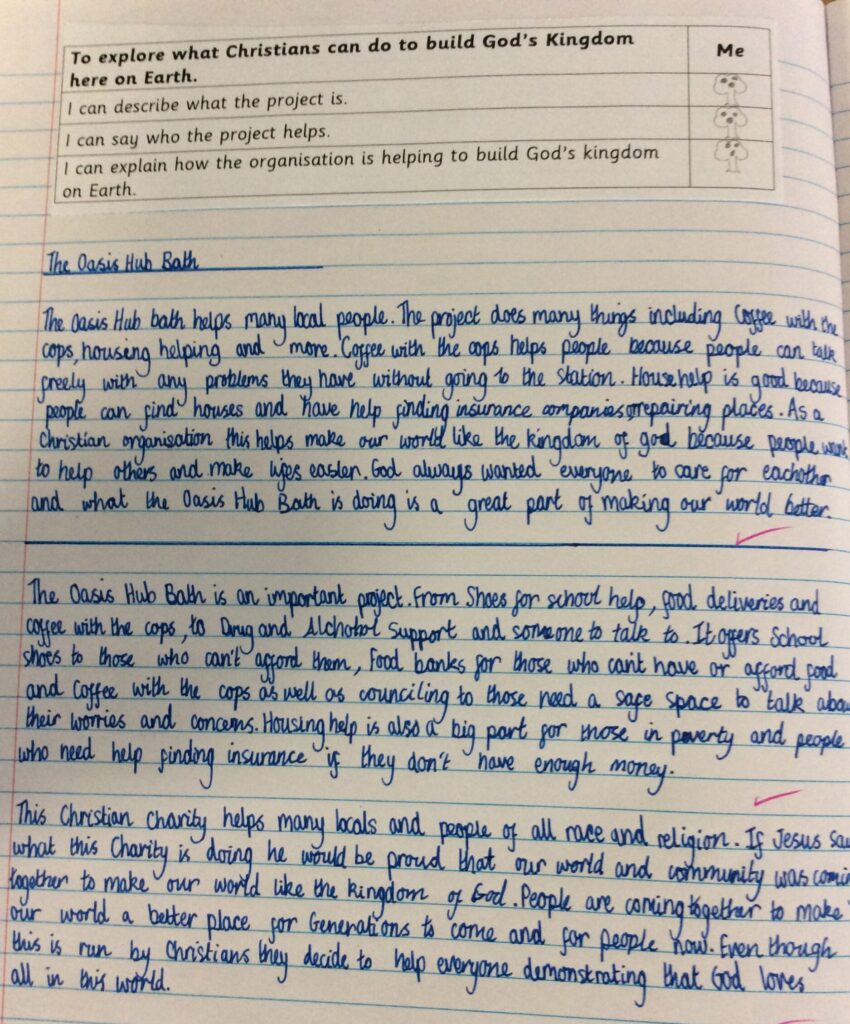 To explore what Christians can do to build God's Kingdom
here on Earth.
Me
I can describe what the project is.
I can say who the project helps.
I can explain how the organisation is helping to build God's kingdom
on Earth.
The Oasis Hub Bath
The Oasis Hub bath helps many local people. The project does many things including Coffee with the
cops, housing helping and more. Coffee with the cops helps people because people can talk
freely with any problems they have without going to the station. Househelp is good because
people can find houses and have help finding insurance companies repairing places. As a
Christian organisation this helps make our world like the kingdom of god because people want
to help others and make lifes easier. God always wanted everyone to care for eachother
and what the Oasis Hub Bath is doing is a great part of making our world better.
The Oasis Hub Bath is an important project. From Shoes for school help, food deliveries and
coffee with the cops, to Drug and Alchohol Support and someone to talk to. It offers School
shoes to those who can't afford them, Food banks for those who can't have or afford food
and Coffee with the cops as well as counciling to those need a safe space to talk abou
their worries and concerns. Housing help is also a big part for those in poverty and people
who need help finding insurance if they don't have enough money.
This Christian Charity helps many locals and people of all race and religion. If Jesus saw
what this Charity is doing he would be proud that our world and community was comin
together to make our world like the kingdom of God. People are coming together to make
our world a better place for Generations to come and for people now. Even though
this is run by Christians they decide to help everyone demonstrating that God loves
all in this world.